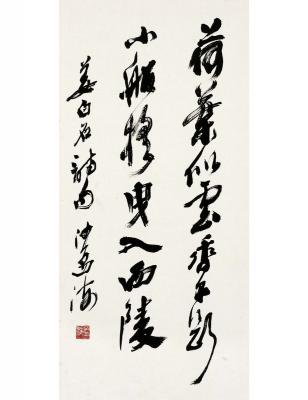 荷葉似雲香不斷
小船搖曳入西陵
姜白石詩句 沙孟海